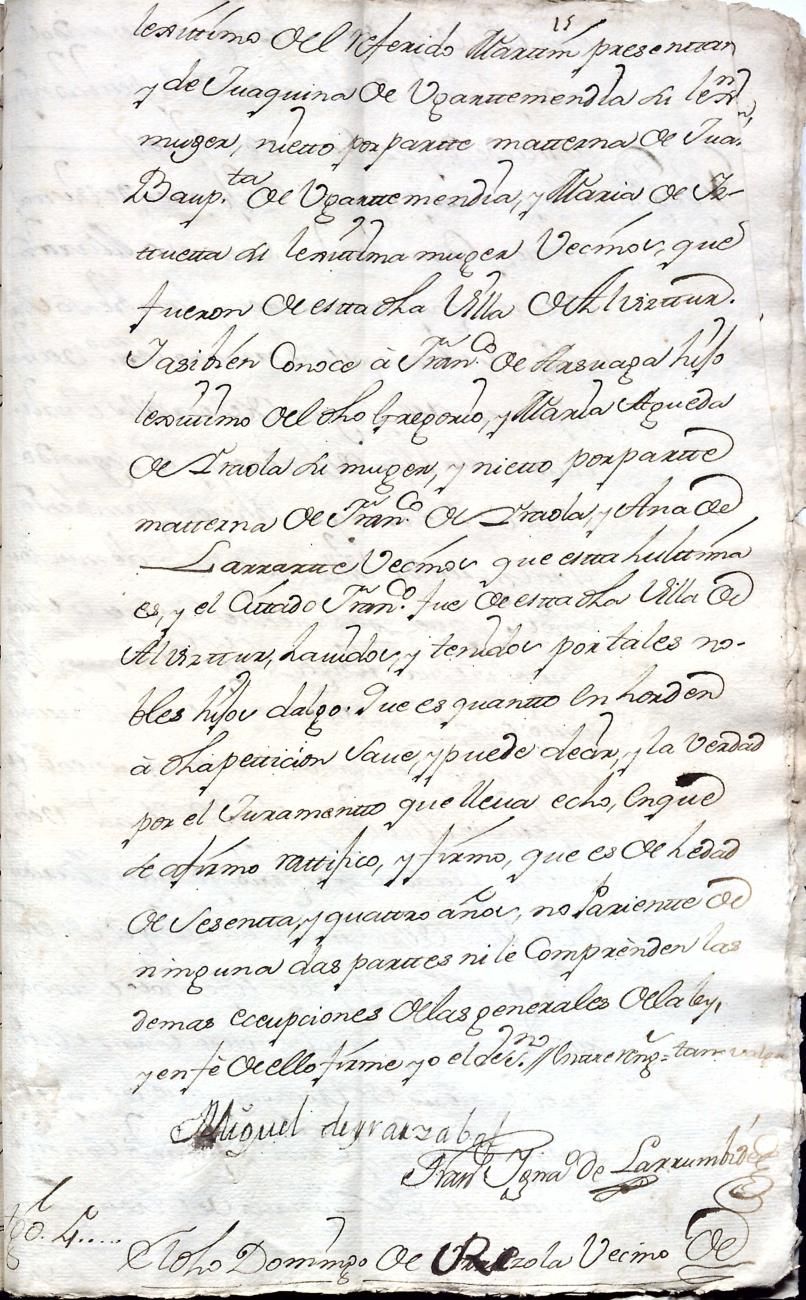 15
lexittimo del referido Marttin presenttan
y de Juaquina de Ugarttemendia su lexma
muger, nietto por partte matterna de Juan
Baup.ta de Ugarttemendia, y Maria de Ye-
ttuetta su lexittima muger Vecinos, que
fueron de estta dha Villa de Alvizttur.
Jasibien Conoce à Fran.co de Arsuaga hijo
lexittimo del dho Gregorio, y Maria Agueda
de Yraola su muger, y nietto por partte
matterna de Fran.co de Yraola y Ana de
Larrartte Vecinos que estta hulttima
es, y el Cittado Fran.co fue de estta dha Villa de
Alvizttur, havidos, y tenidos por tales no-
bles hijos dalgo. Que es quantto en horden
à dha petticion save, y puede decir, y la verdad
por el Juramentto que lleva echo, en que
se afirmo rattifico, y firmo, que es de hedad
de Sesentta, y quattro años, no Pariente de
ninguna das parttes ni le Comprènden las
demas eceupciones de las generales de la ley,
y en fè de ello firme yo el dho S.no // Entre reng.s = tan valga
Miguel de yrarzabal
Fran.co Ign.o de Larrumbide
tgo. 4.....
El dho Domingo de Urezola Vecino de